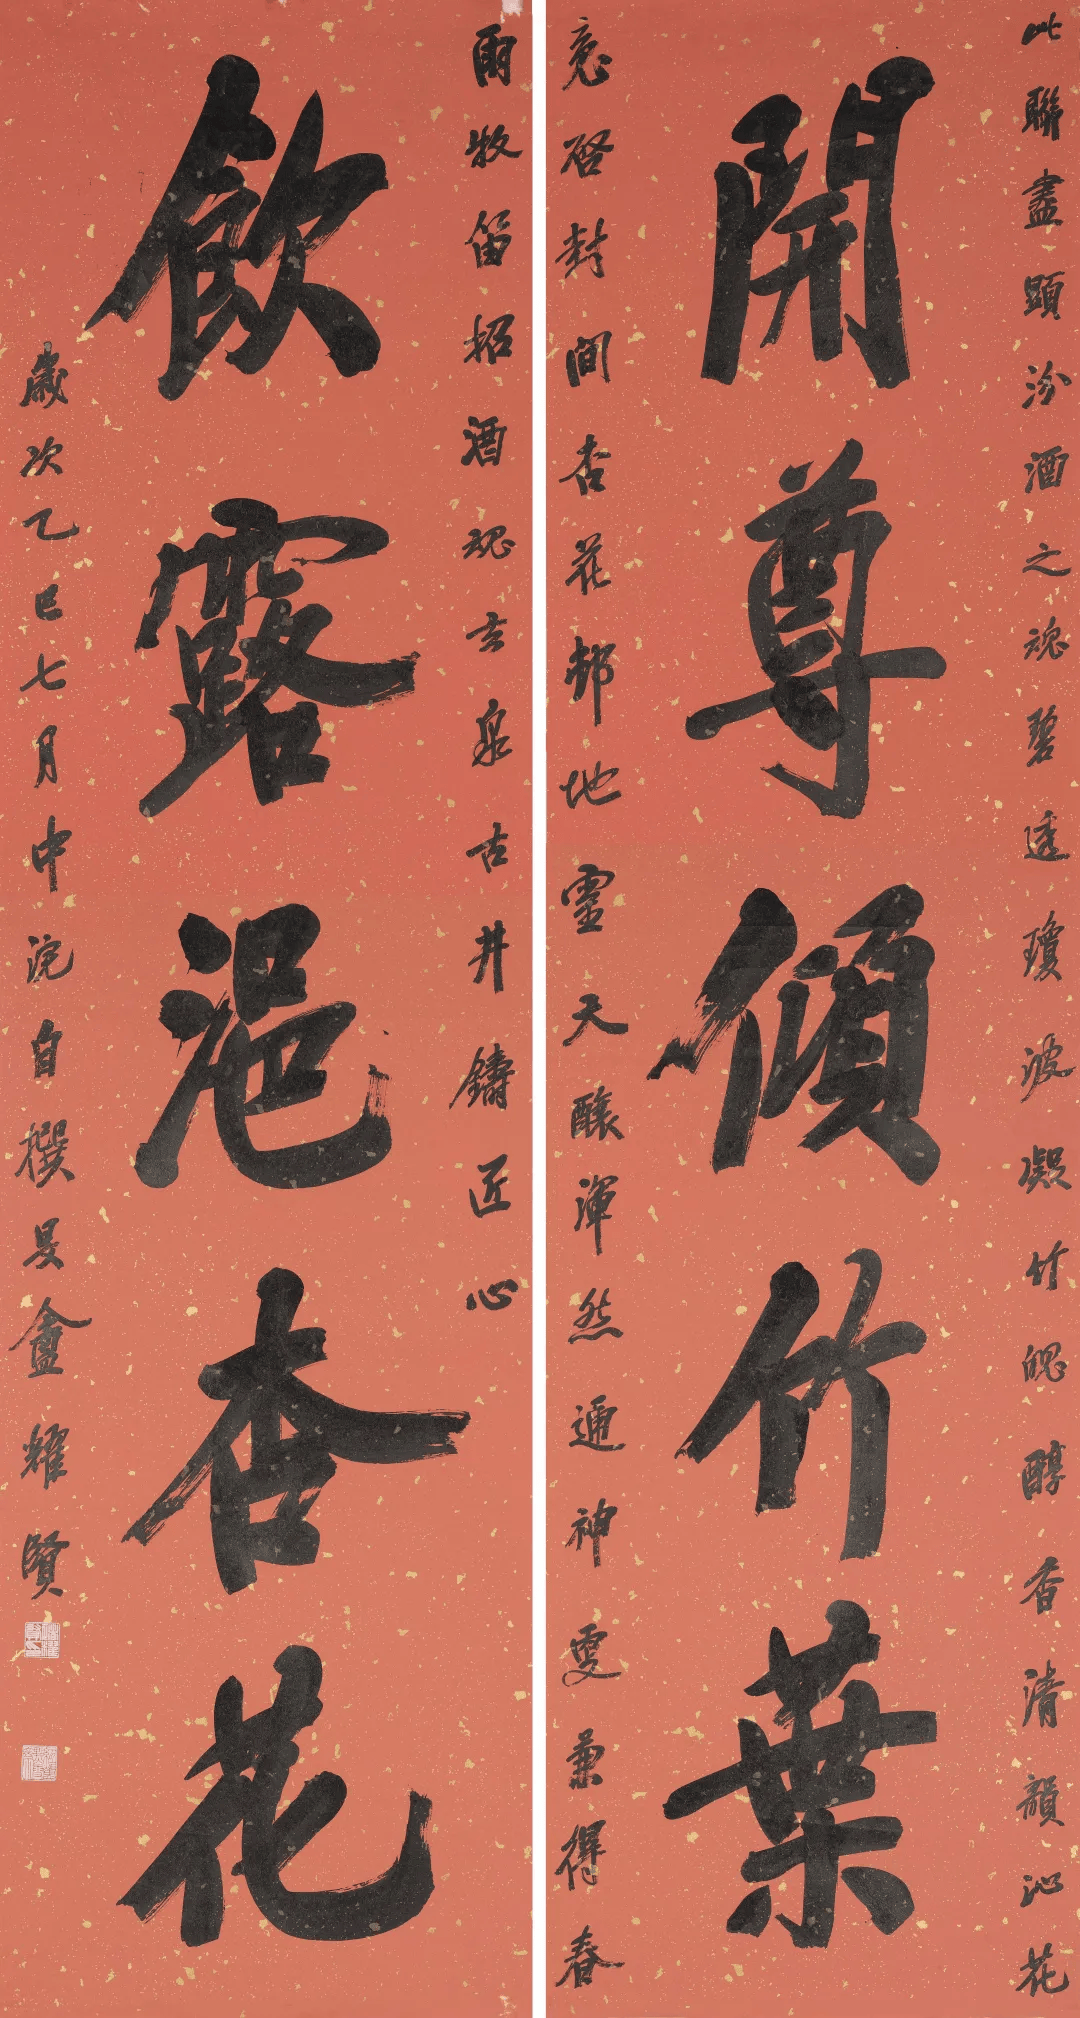 此聯盡顯汾酒之魂碧透瓊波凝竹魄醇香清韻沁花
開尊傾竹葉
意啓封間杏花邨地靈天釀渾然通神雯兼得春
雨牧笛招酒魂玄泉古井鑄匠心
飲露浥杏花
歲次乙巳七月中浣自撰旻盦耀賢